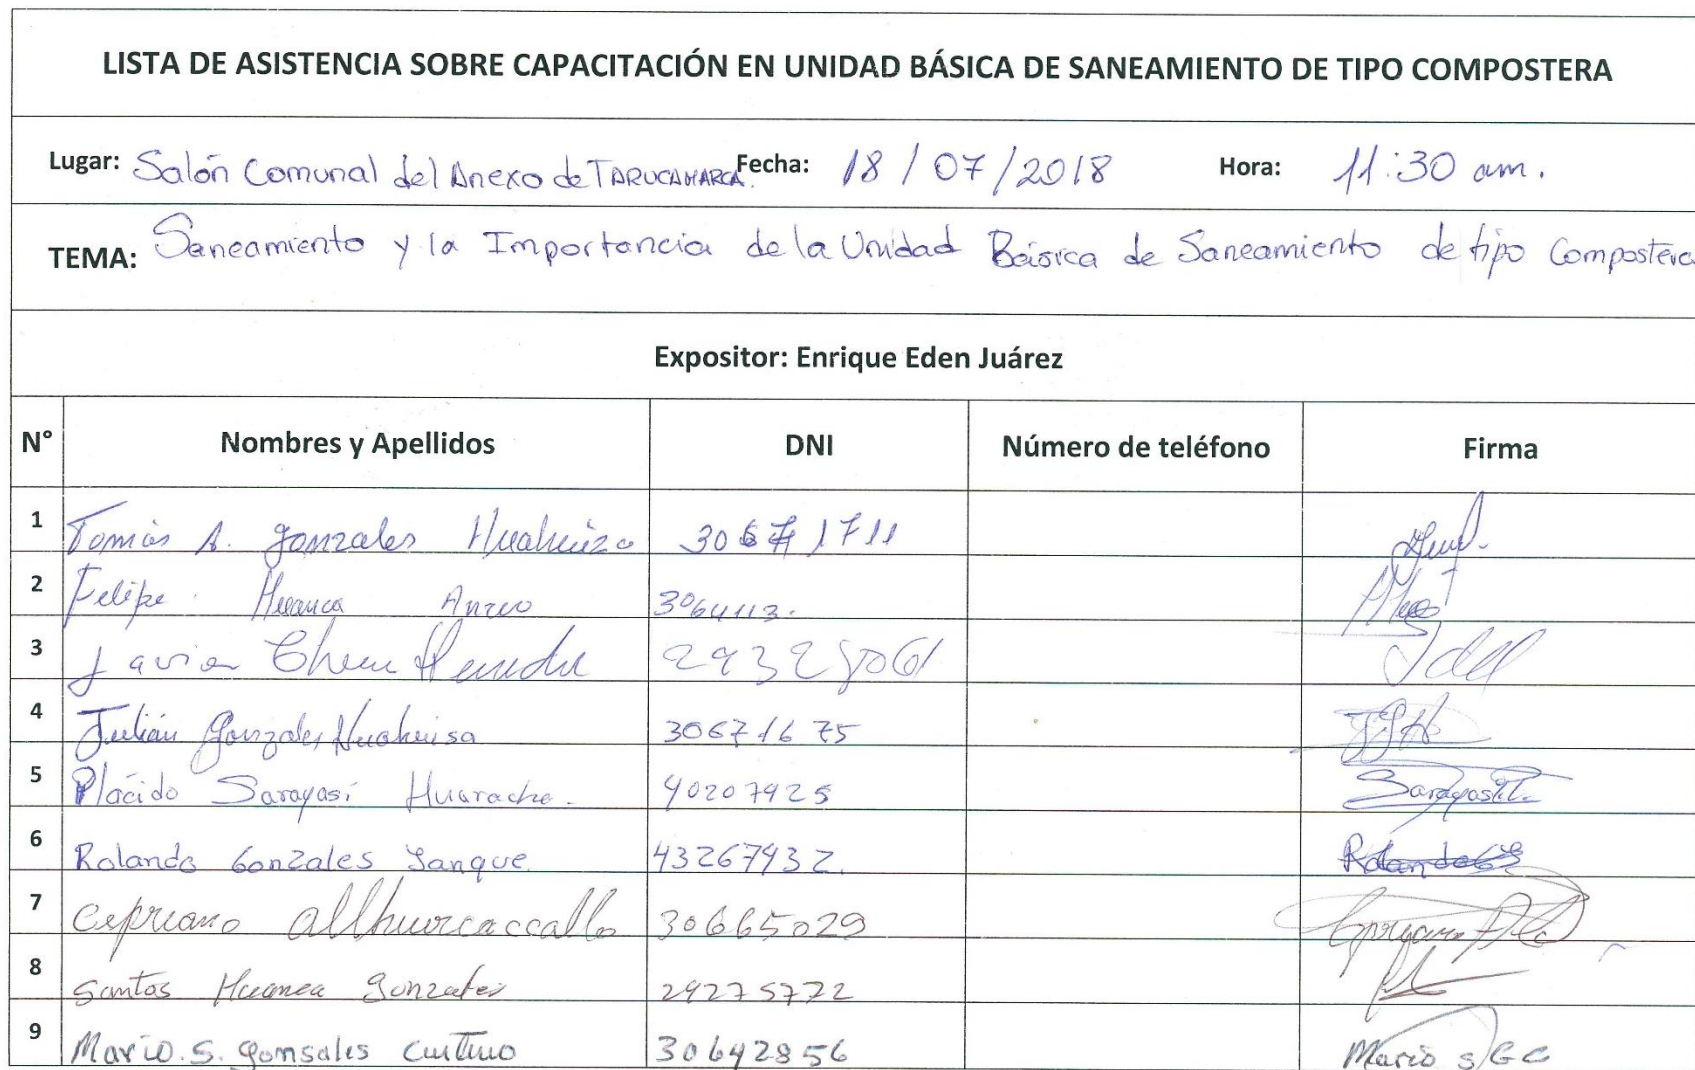 LISTA DE ASISTENCIA SOBRE CAPACITACIÓN EN UNIDAD BÁSICA DE SANEAMIENTO DE TIPO COMPOSTERA
Lugar: Salón Comunal del Anexo de TARUCAMARCA. Fecha: 18/07/2018 Hora: 11:30 am.
TEMA: Saneamiento y la Importancia de la Unidad Básica de Saneamiento de tipo Compostera
Expositor: Enrique Eden Juárez
N° Nombres y Apellidos DNI Número de teléfono Firma
1 Tomás A. Gonzales 30671711
2 Felipe Huanca 3064113.
3 Javier
4 Julián Gonzales Huahuisa 30671675
5 Plácido Sarayasi Huarache. 40207925
6 Rolando Gonzales Yanque. 43267932. Rolando
7 Cepriano Allhuircaccallo 30665029
8 Santos Huanca Gonzales 29275772
9 Mario.S. Gonsales 30642856 Mario S G C